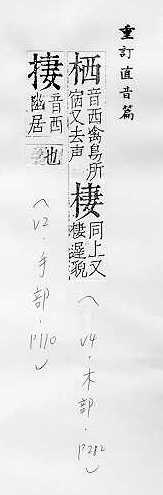 重訂直音篇
栖音西禽鳥所宿又去声棲同上又棲遲貌
（V4．木部．P282）
捿音西幽居也
（V2．手部．P110）